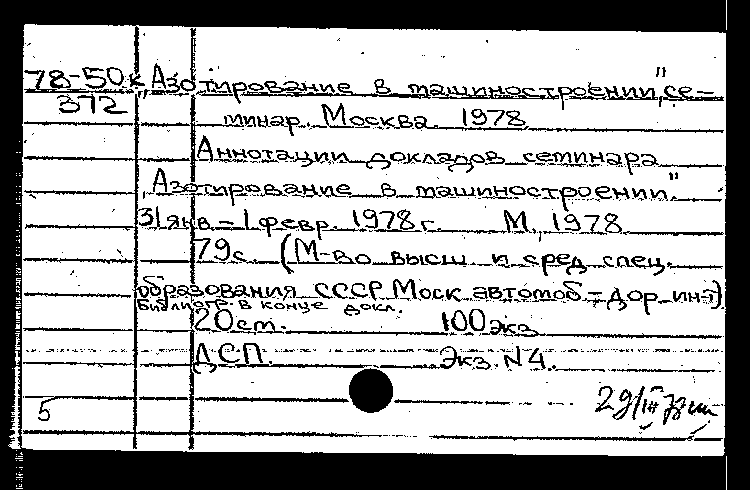 78-50к „Азотирование в машиностроении", се-
372 минар. Москва. 1978
Аннотации докладов семинара
„Азотирование в машиностроении."
31 янв – 1 февр. 1978 г. М., 1978
79 с. (М-во высш и сред спец.
образования СССР Моск автомоб-дор ин-т)
Библиогр. в конце докл.
20 см. 100 экз
ДСП. Экз. N4.
5 29/III 78